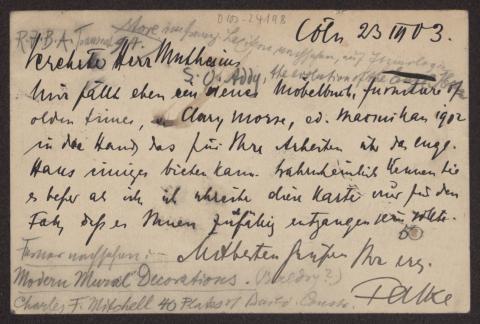 D 102-24198
Cöln 23 III 03.
R.I.B.A. Journal
Verehrter Herr Muthesius
S. O. Addy, the evolution of the English House
Mir fällt eben ein neues Möbelbuch, furniture of
olden times, v. Clary Morse, ed. Macmillan 1902
in die Hand, das für Ihre Arbeiten über das engl.
Haus einiges bieten kann. Wahrscheinlich kennen Sie
es besser als ich, ich schreibe diese Karte nur für den
Fall, daß es Ihnen zufällig entgangen sein sollte.
50
Ferner nachsehen:
Mit besten Grüßen Ihr erg.
Modern Mural Decorations.
Falke
Charles F. Mitchell 40 Plates of Constr.